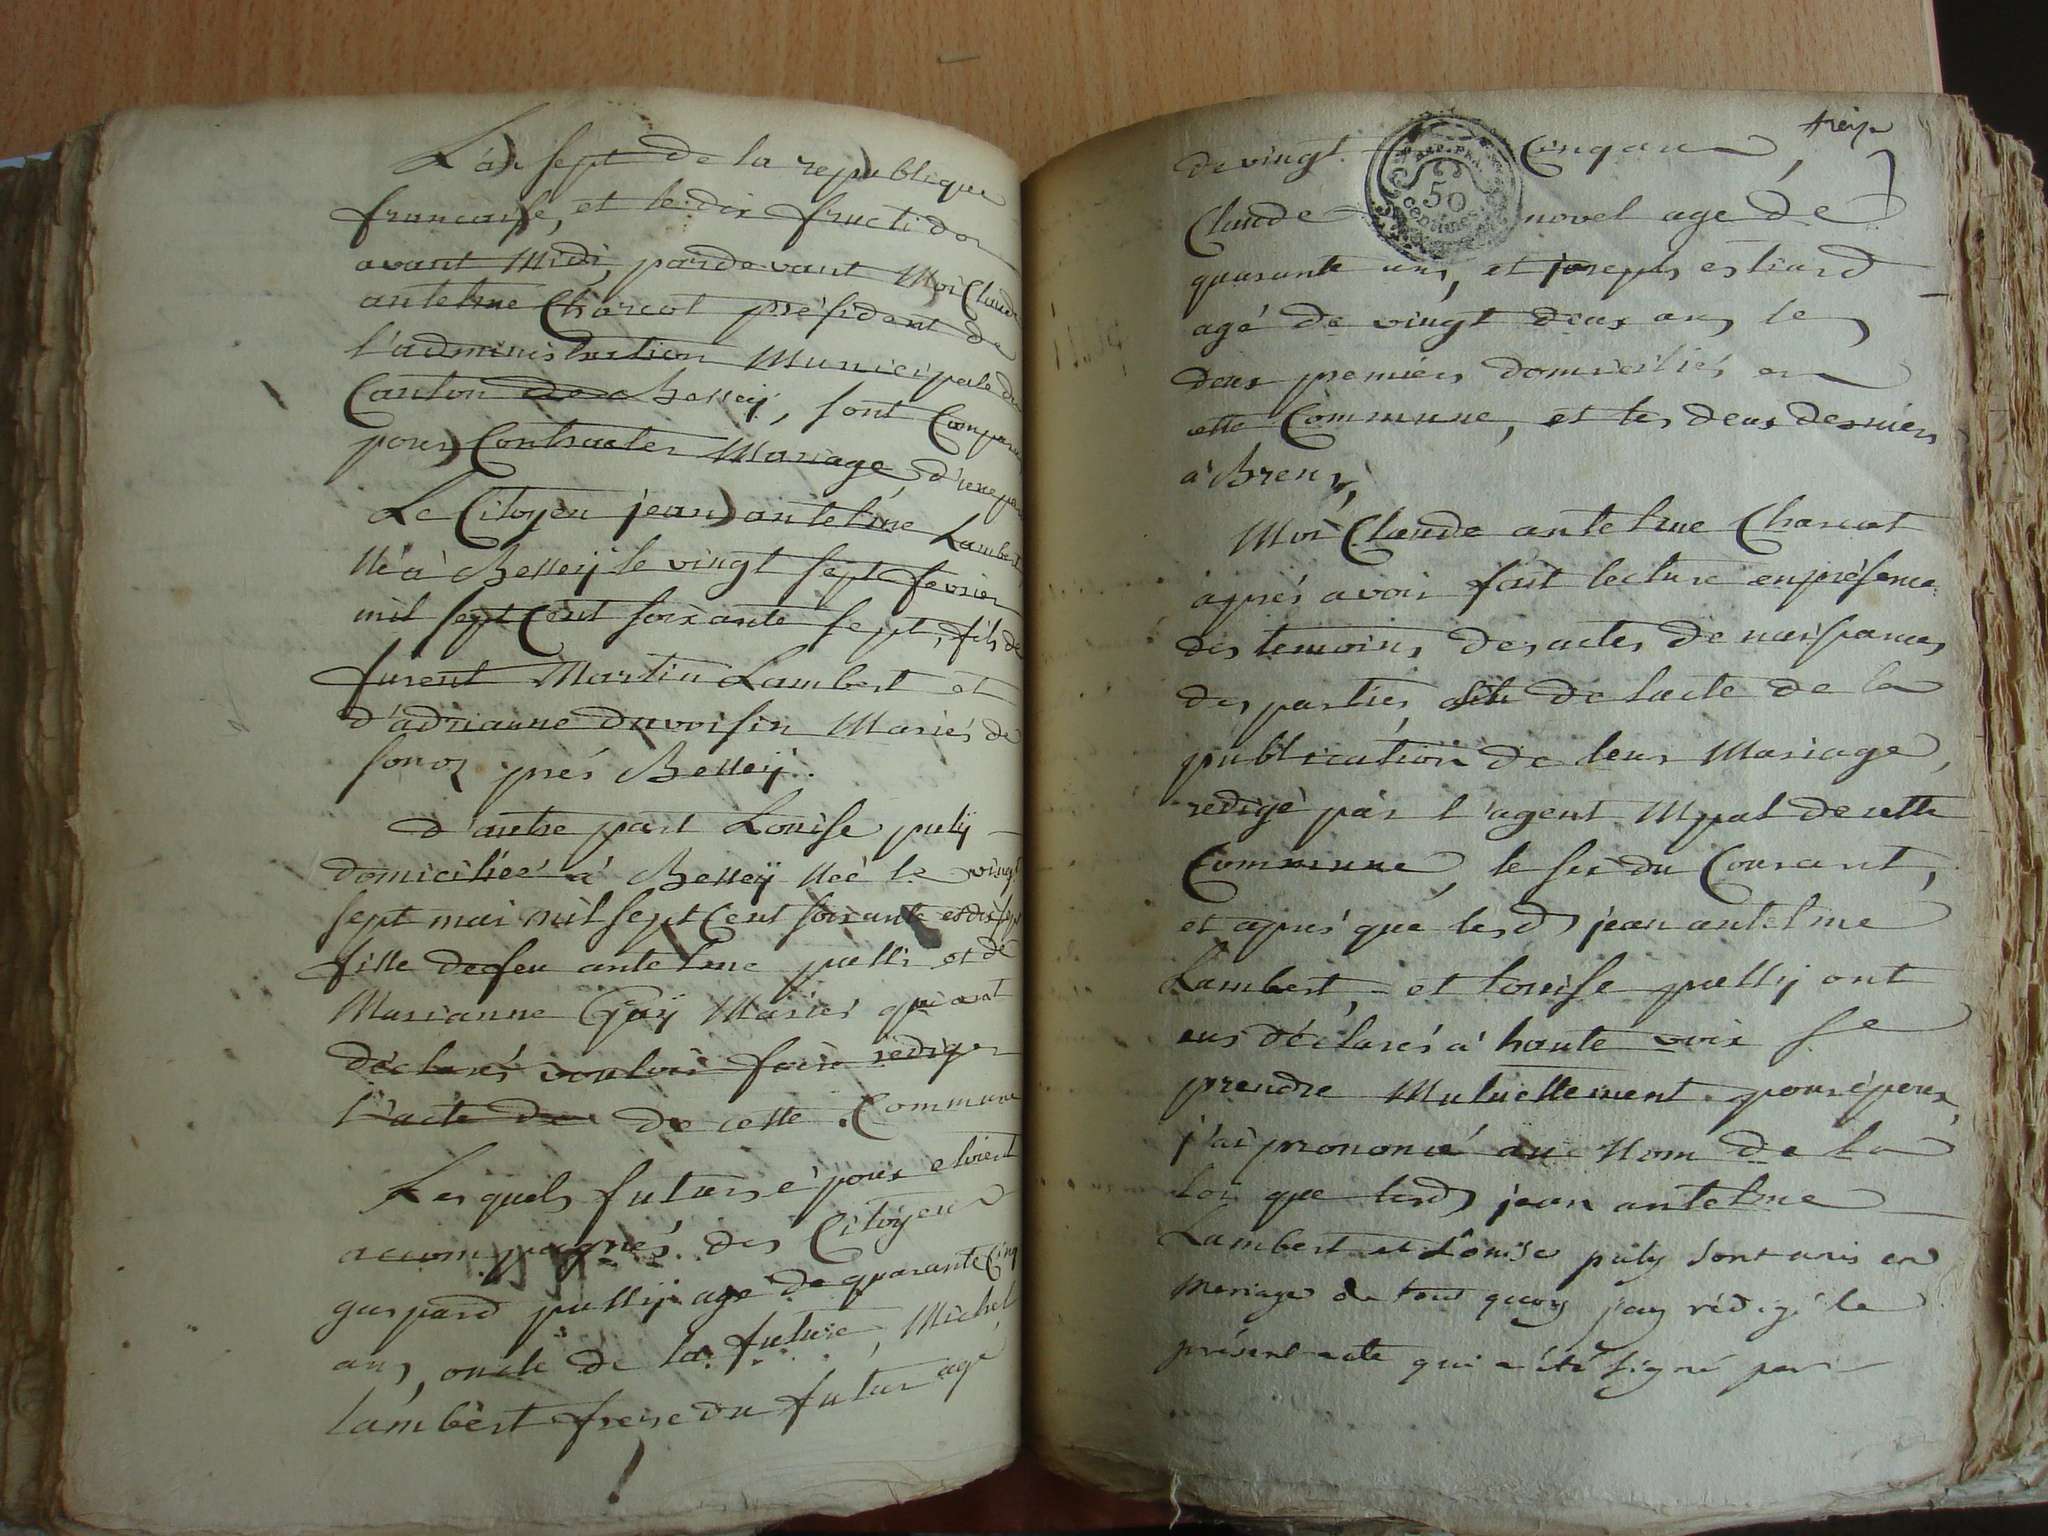 L'an sept de la republique
francaise, et le dix fructidor
avant Midi, pardevant Moi Claude
antelme Charcot président de
l'administration Municipale du
Canton de Belleÿ, sont Comparus
pour Contracter Mariage, d'une part
Le Citoyen jean antelme Lambert
Né à Belleÿ le vingt sept fevrier
mil sept Cent soixante sept, fils de
furent Martin Lambert et
d'adrianne duvoisin Mariés de
sonod prés Belleÿ.
d'autre part Louise pulÿ
domiciliée à Belleÿ Née le vingt
sept mai mil sept Cent soixante et dix sept
fille defeu antelme pulli et de
Marianne Gaÿ Mariés qui ont
déclarés vouloir faire rediger
l'acte de de cette Commune
Lesquels futurs époux etoient
accompagnés des Citoyens
gaspard pullÿ agé de quarante Cinq
ans, oncle de la future, Michel
lambert frere du futur agé
treize
de vingt Cinq ans,
50
Centimes
Claude novel agé de
quarante ans, et joseph estiard
agé de vingt deux ans les
deux premiers domiciliés en
cette Commune, et les deux derniers
à Brens,
Moi Claude antelme Charcot
aprés avoir fait lecture en présence
des temoins des actes de naissances
des parties, de lacte de la
publication de leur Mariage,
redigé par l'agent Mpal de cette
Commune, le six du Courant,
et aprés que lesd jean antelme
Lambert, et louise pully ont
eus déclarés à haute voix se
prendre Mutuellement pour époux,
j'ai prononcé au Nom de la
loi que lesd jean antelme
Lambert et Louise puly sont unis en
Mariage de tout quoy jay rédigé le
présent acte qui a été signé par